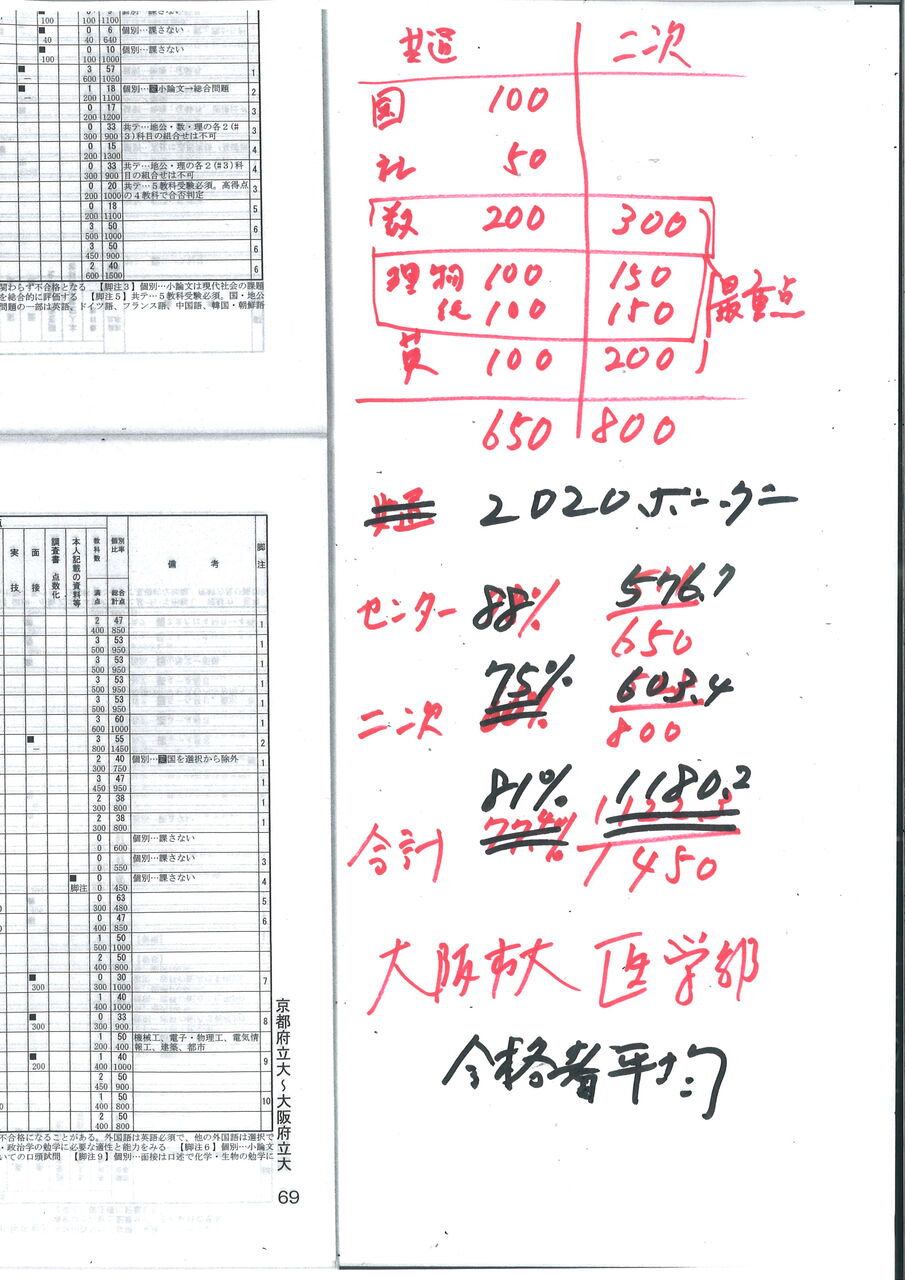 100 1100
0 6 個別…課さない
40 40 640
0 10 個別…課さない
100 100 1000
3 57
600 1050 1
1 18 個別…小論文→総合問題
200 1100 2
0 17
200 1200 3
0 33 共テ…地公・数・理の各2(#
300 900 3)科目の組合せは不可 3
0 15
200 1300 4
0 33 共テ…地公・理の各2(#3)科
300 900 目の組合せは不可 4
0 20 共テ…5教科受験必須。高得点
200 1000 の4教科で合否判定 3
0 18
200 1100 5
3 50
500 1000 6
3 50
450 900 6
2 40
600 1500 6
関わらず不合格となる 【脚注3】個別…小論文は現代社会の課題
を総合的に評価する 【脚注5】共テ…5教科受験必須。国・地公
問題の一部は英語、ドイツ語、フランス語、中国語、韓国・朝鮮語
共通 二次
国 100
社 50
数 200 300
理 物 100 150
化 100 150
最重点
英 100 200
650 800
共通 2020.ボーダー
センター 88% 576.7
650
二次 75% 603.4
800
合計 81% 1180.2
1450
大阪市大 医学部
合格者平均
実技 面接 調査書点数化 本人記載の資料等 教科数 満点 個別比率 総合計点 備考 脚注
2 47
400 850 1
3 53
500 950 1
3 53
500 950 1
3 53
500 950 1
3 53
500 950 1
3 60
600 1000 1
3 55
800 1450 2
2 40 個別…国を選択から除外
300 750 1
3 47
450 950 1
2 38
300 800 1
2 38
300 800 1
0 個別…課さない
0 600
0 個別…課さない
0 550 3
0 個別…課さない
脚注 0 450 4
0 63
300 480 5
0 47
400 850 6
1 50
500 1000
2 50
400 800
0 30
300 300 1000 7
1 40
400 1000
0 33
300 300 900 8
1 50 機械工、電子・物理工、電気情
200 400 報工、建築、都市
1 40
200 400 1000 9
2 50
450 900
1 50
400 800 10
2 50
400 800
不合格になることがある。外国語は英語必須で、他の外国語は選択で
・政治学の勉学に必要な適性と能力をみる 【脚注6】個別…小論文
いての口頭試問 【脚注9】個別…面接は口述で化学・生物の勉学に
京都府立大～大阪府立大
69